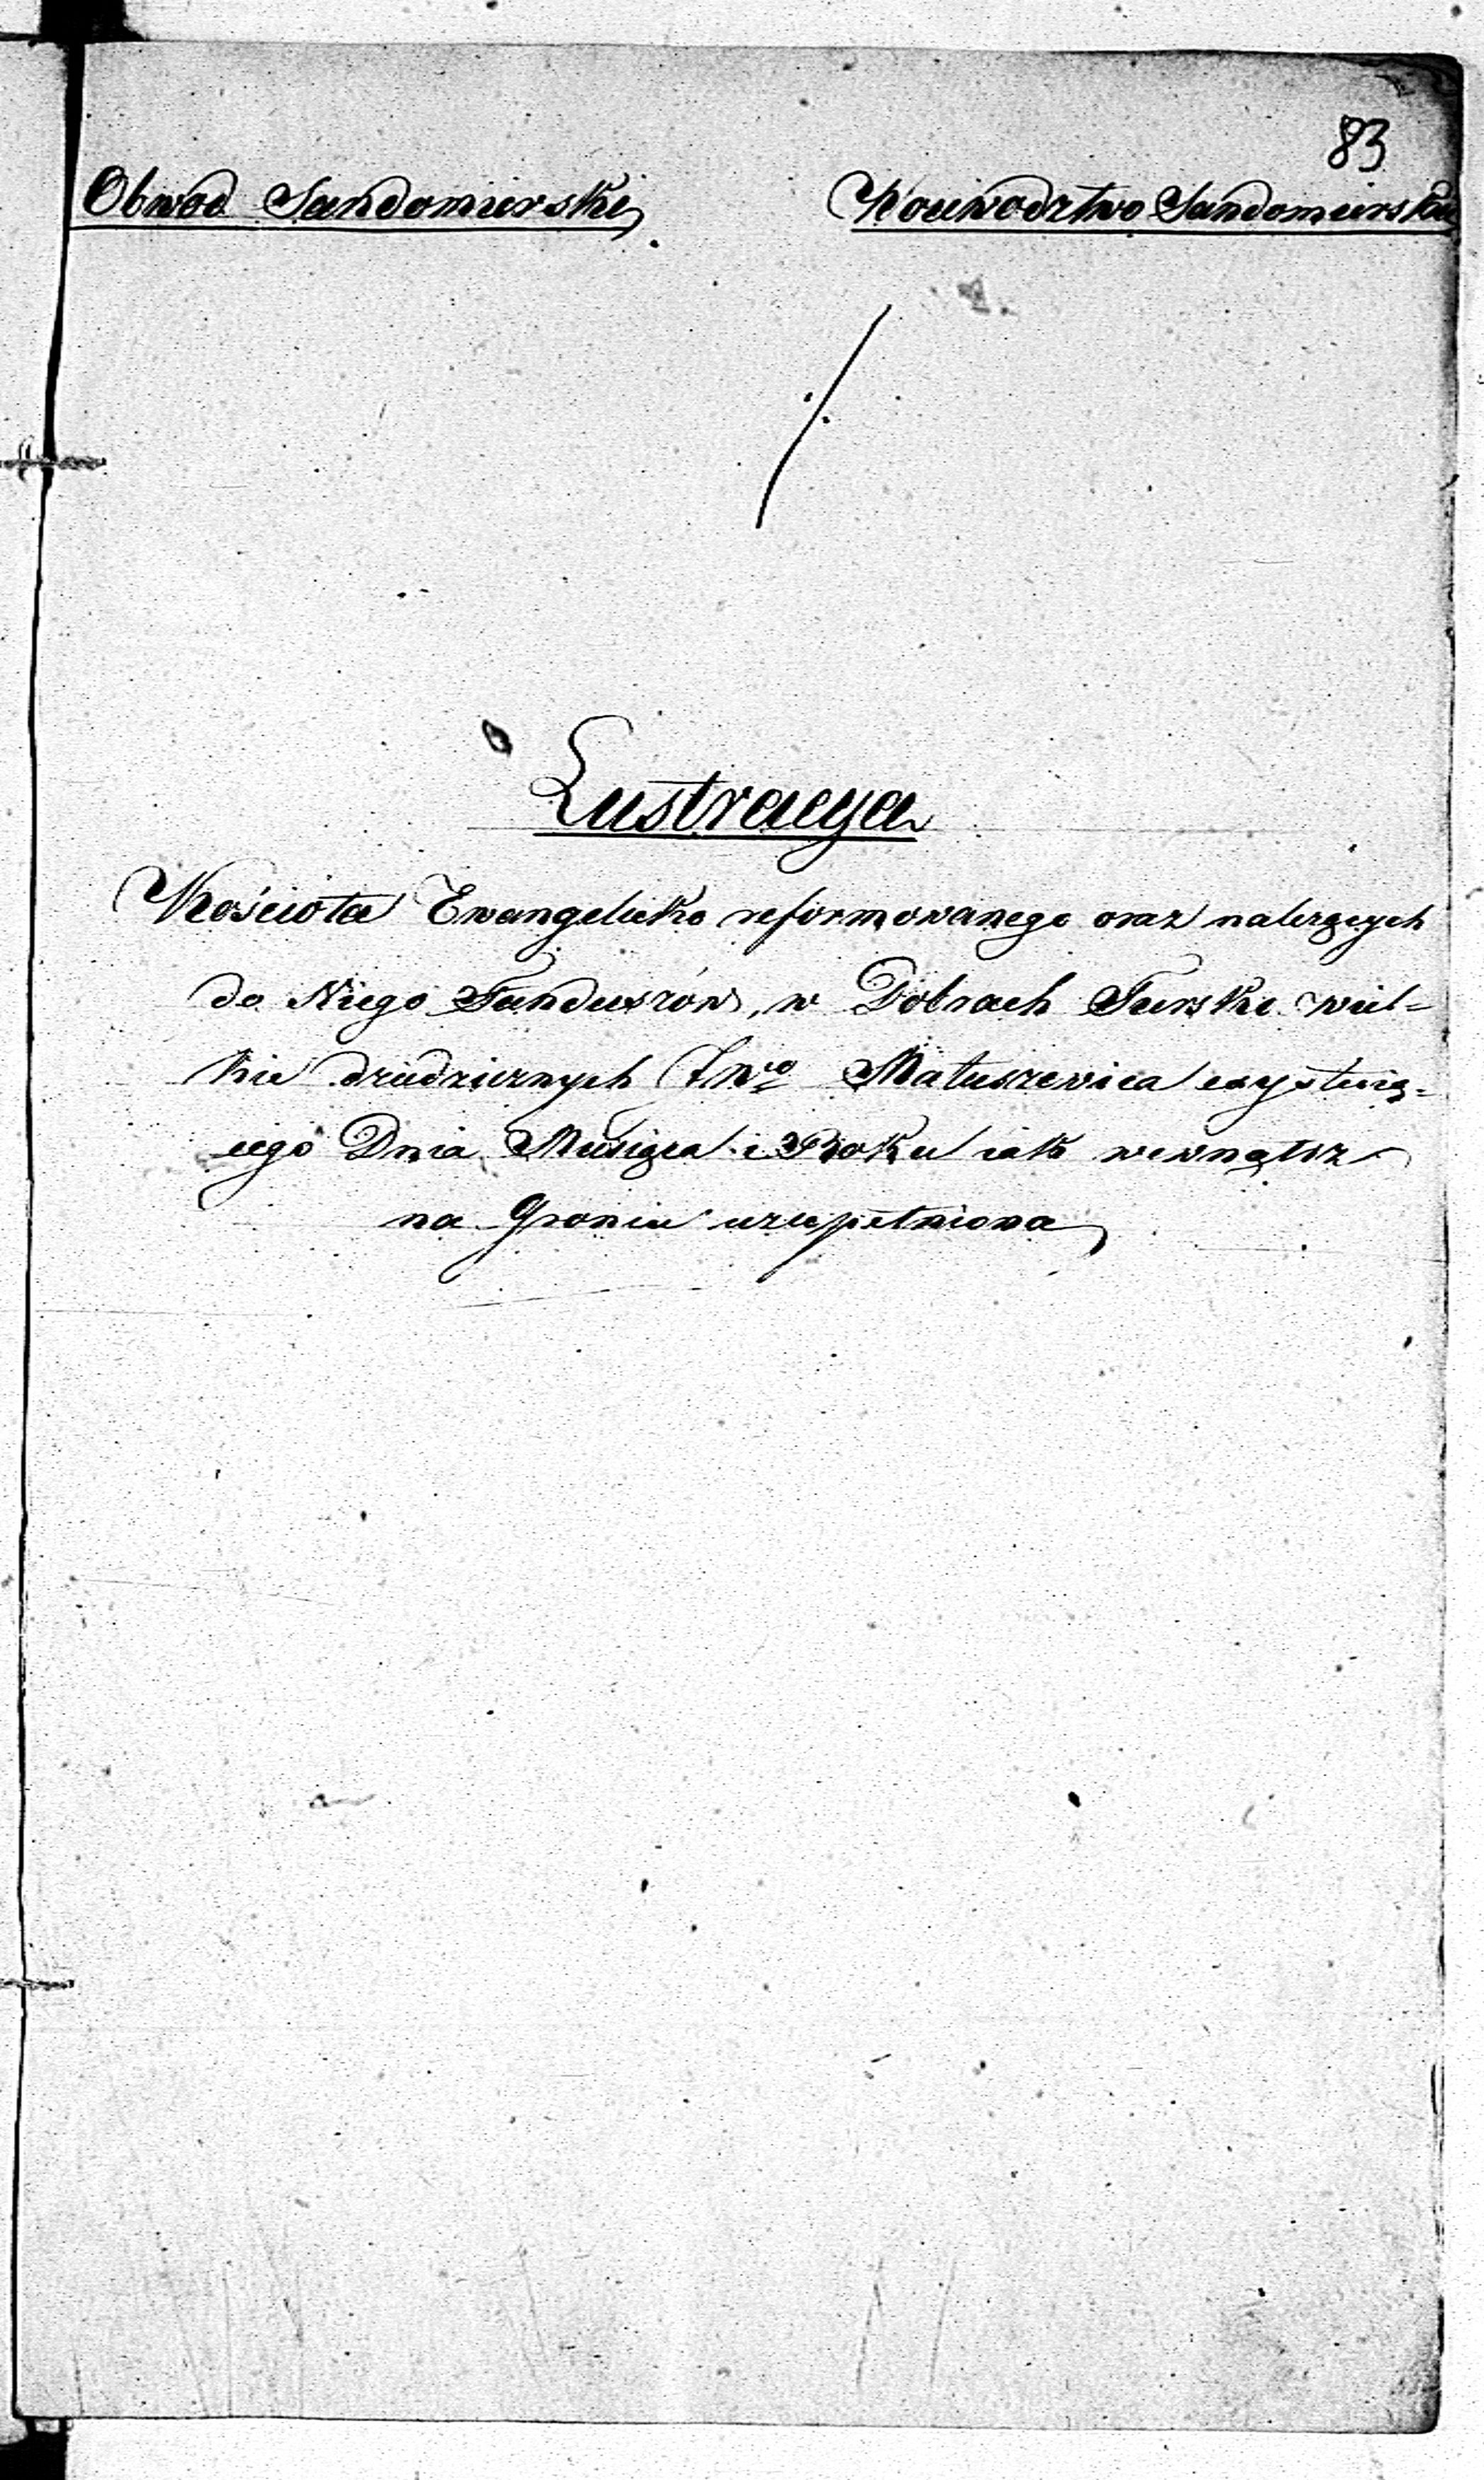 83
Obwod Sandomierski
Woiewodztwo Sandomierskie
Lustracya
Kościoła Ewangelicko reformowanego oraz należących
do Niego Funduszów, w Dobrach Tursko wiel-
kie dziedzicznych JWo Matuszewica exystuią-
cego Dnia Miesiąca i Roku iak wewnątrz
na Groncie uzupełniona